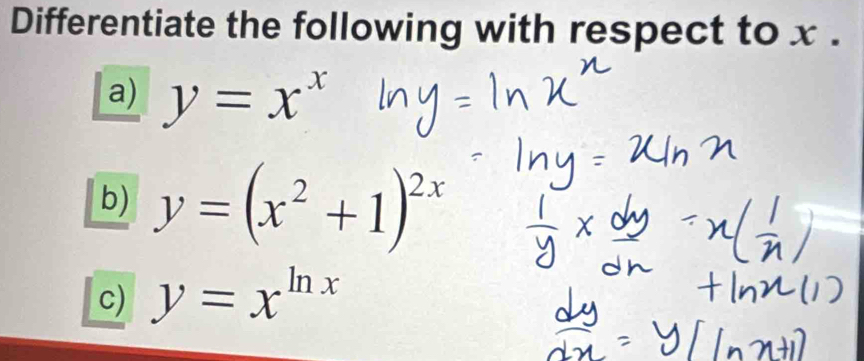 Differentiate the following with respect to x .
a) y = x^x
ln y = ln x^x
= ln y = x ln x
b) y = (x² + 1)^{2x}
1/y × dy/dx = x(1/x)
+ ln x (1)
c) y = x^{ln x}
dy/dx = y[ln x + 1]